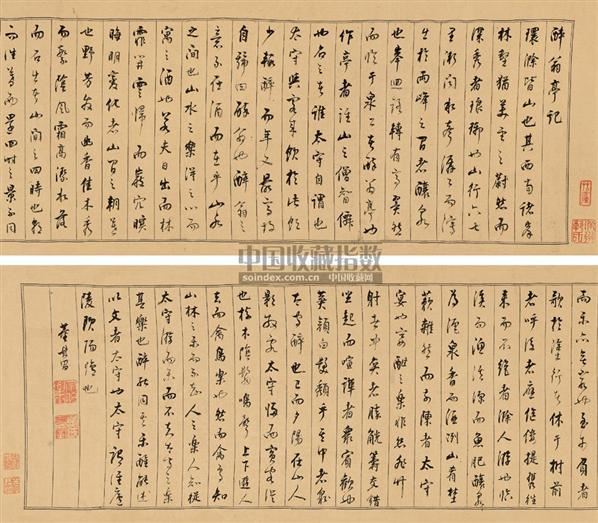 醉翁亭記
環滁皆山也其西南諸峯
林壑猶美望之蔚然而
深秀者琅琊也山行六七
里漸聞水聲潺潺而瀉
出於兩峰之間者釀泉
也峯回路轉有亭翼然
而臨于泉上者醉翁亭也
作亭者誰山之僧智僊
名之者誰太守自謂也
太守與客來飲於此飲
少輒醉而年又最高故
自號曰醉翁也醉翁之
意不在酒而在乎山水
之間也山水之樂得之心而
寓之酒也若夫日出而林
霏開雲歸而巖穴暝
晦明變化者山間之朝暮
也野芳發而幽香佳木秀
而繁陰風霜高潔水落
而石出者山間之四時也朝
而往暮而歸四時之景不同
而樂亦無窮也至于負者
歌於塗行者休于樹前
者呼後者應傴僂提攜往
來而不絕者滁人游也臨
溪而漁溪深而魚肥釀泉
為酒泉香而酒洌山肴野
蔌雜然而前陳者太守
宴也宴酣之樂非絲非竹
射者中奕者勝觥籌交錯
坐起而諠譁者衆賓歡也
蒼顏白髮頹乎其中者
太守醉也已而夕陽在山人
影散亂太守歸而賓客從
也樹林陰翳鳴聲上下遊人
去而禽鳥樂也然而禽鳥知
山林之樂而不知人之樂人知從
太守游而樂而不知太守之樂
其樂也醉能同其樂醒能述
以文者太守也太守謂誰廬
陵歐陽脩也
董其昌
中国收藏指数
soindex.com 中国收藏网